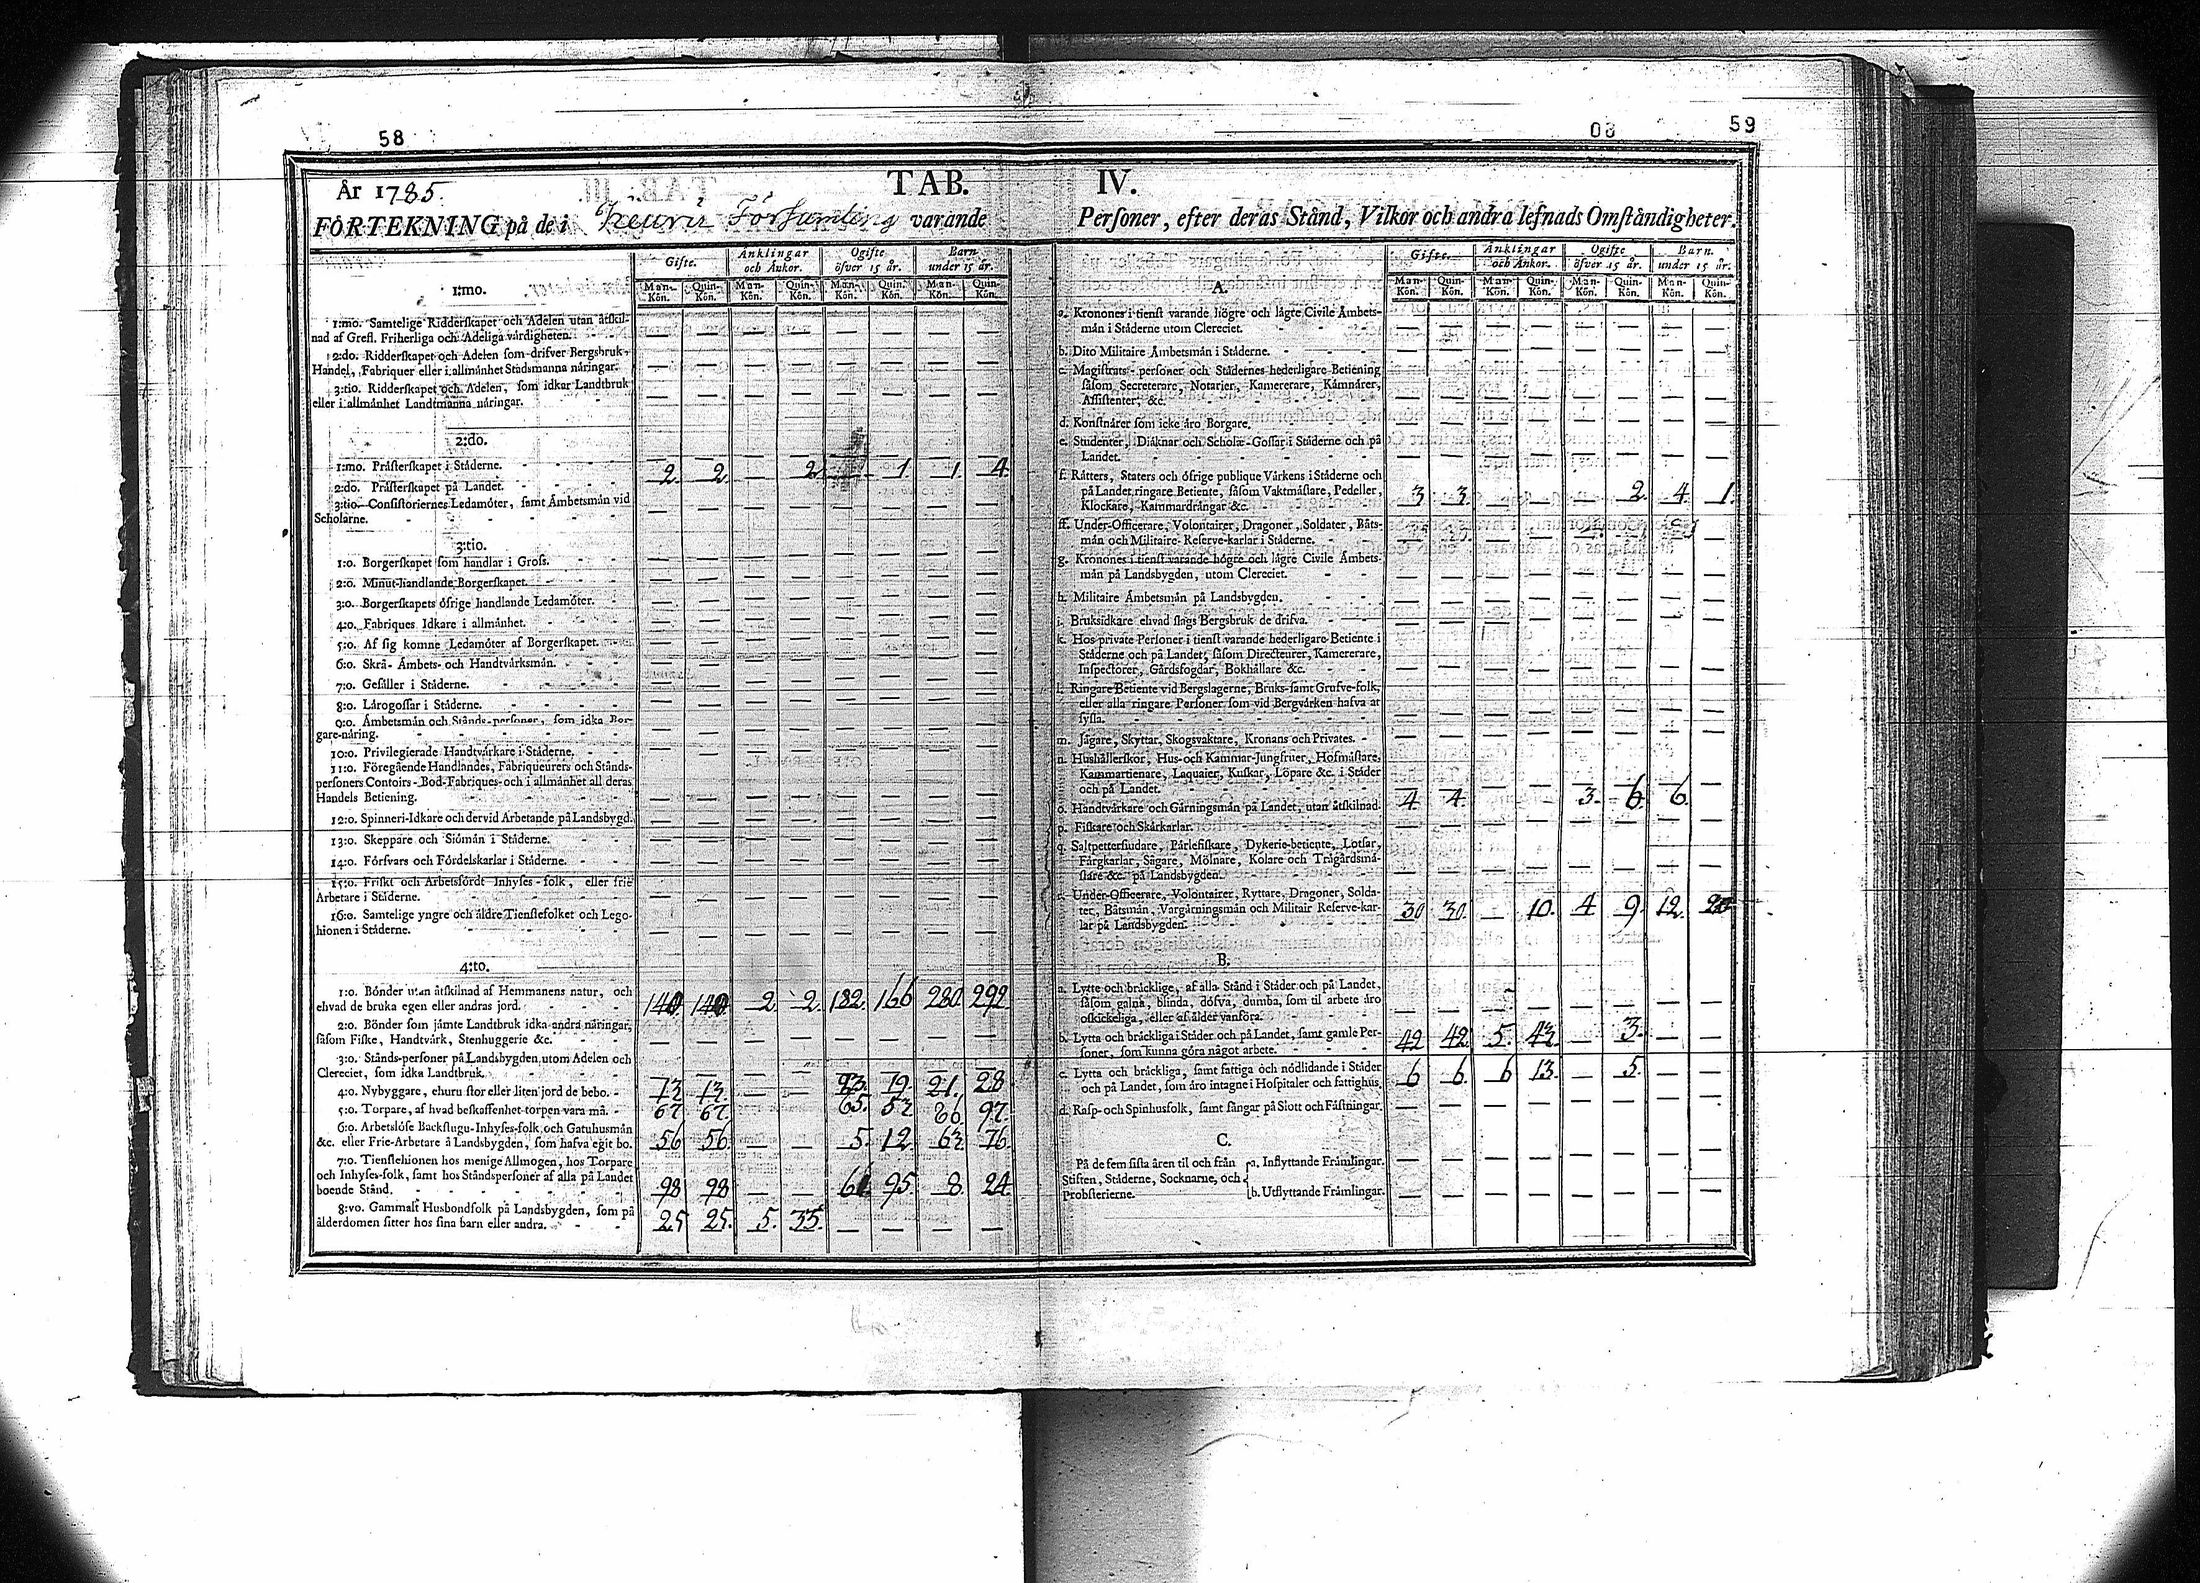 58
08 59
År 1785.
TAB. IV.
FÖRTEKNING på de i Keuru Församling varande Personer, efter deras Stånd, Vilkor och andra lefnads Omståndigheter.
Gifte. Änklingar och Änkor. Ogifte öfver 15 år. Barn under 15 år.
Man-Kön. Quin-Kön. Man-Kön. Quin-Kön. Man-Kön. Quin-Kön. Man-Kön. Quin-Kön.
1:mo.
1:mo. Samtelige Ridderskapet och Adelen utan åtskil-
nad af Grefl. Friherliga och Adeliga värdigheten. — — — — — — — —
2:do. Ridderskapet och Adelen som drifver Bergsbruk,
Handel, Fabriquer eller i allmånhet Stadsmanna nåringar. — — — — — — — —
3:tio. Ridderskapet och Adelen, som idkar Landtbruk
eller i allmånhet Landtmanna nåringar. — — — — — — — —
2:do.
1:mo. Pråsterskapet i Ståderne. — — — — — — — —
2:do. Pråsterskapet på Landet. 2. 2. 2. 1 1. 4.
3:tio. Consistoriernes Ledamöter, samt Åmbetsmån vid
Scholarne. — — — — — — — —
3:tio.
1:o. Borgerskapet som handlar i Gross. — — — — — — — —
2:o. Minut-handlande Borgerskapet. — — — — — — — —
3:o. Borgerskapets öfrige handlande Ledamöter. — — — — — — — —
4:o. Fabriques Idkare i allmånhet. — — — — — — — —
5:o. Af sig komne Ledamöter af Borgerskapet. — — — — — — — —
6:o. Skrå- Åmbets- och Handtvårksmån. — — — — — — — —
7:o. Gesåller i Ståderne. — — — — — — — —
8:o. Lårogossar i Ståderne. — — — — — — — —
9:o. Åmbetsmån och Stånds-personer, som idka Bor-
gare-nåring. — — — — — — — —
10:o. Privilegierade Handtvårkare i Ståderne. — — — — — — — —
11:o. Föregående Handlandes, Fabriqueurers och Stånds-
personers Contoirs-Bod-Fabriques-och i allmånhet all deras
Handels Betiening. — — — — — — — —
12:o. Spinneri-Idkare och dervid Arbetande på Landsbygd. — — — — — — — —
13:o. Skeppare och Siömån i Ståderne. — — — — — — — —
14:o. Försvars och Fördelskarlar i Ståderne. — — — — — — — —
15:o. Friskt och Arbetsfördt Inhyses-folk, eller frie
Arbetare i Ståderne. — — — — — — — —
16:o. Samtelige yngre och åldre Tienstefolket och Lego-
hionen i Ståderne. — — — — — — — —
4:to.
1:o. Bönder utan åtskilnad af Hemmanens natur, och
ehvad de bruka egen eller andras jord. 140. 140. 2. 2. 182. 166 280. 292.
2:o. Bönder som jåmte Landtbruk idka andra nåringar,
såsom Fiske, Handtvårk, Stenhuggerie &c. — — — — — — — —
3:o. Stånds-personer på Landsbygden utom Adelen och
Clereciet, som idka Landtbruk. — — — — — — — —
4:o. Nybyggare, ehuru stor eller liten jord de bebo. 13. 13. 19. 21. 28
5:o. Torpare, af hvad beskaffenhet torpen vara må. 67. 67. 65. 97.
6:o. Arbetslöse Backstugu-Inhyses-folk och Gatuhusmån
&c. eller Frie-Arbetare å Landsbygden, som hafva egit bo. 56 56 — — 5. 12. 76.
7:o. Tienstehionen hos menige Allmogen, hos Torpare
och Inhyses-folk, samt hos Ståndspersoner af alla på Landet
boende Stånd. 98 98 — — 95. 8. 24.
8:vo. Gammalt Husbondfolk på Landsbygden, som på
ålderdomen sitter hos sina barn eller andra. 25 25. 5. 35. — — — —
Gifte. Änklingar och Änkor. Ogifte öfver 15 år. Barn. under 15 år.
Man-Kön. Quin-Kön. Man-Kön. Quin-Kön. Man-Kön. Quin-Kön. Man-Kön. Quin-Kön.
A.
a. Kronones i tienst varande högre och lågre Civile Åmbets-
mån i Ståderne utom Clereciet. — — — — — — — —
b. Dito Militaire Åmbetsmån i Ståderne. — — — — — — — —
c. Magistrats-personer och Stådernes hederligare Betiening
såsom Secreterare, Notarier, Kamererare, Kåmnårer,
Assistenter, &c. — — — — — — — —
d. Konstnårer som icke åro Borgare. — — — — — — — —
e. Studenter, Diåknar och Scholæ-Gossar i Ståderne och på
Landet. — — — — — — — —
f. Råtters, Staters och öfrige publique Vårkens i Ståderne och
på Landet ringare Betiente, såsom Vaktmåstare, Pedeller,
Klockare, Kammardrångar &c. 3 3. — — — 2. 4. 1.
ff. Under-Officerare, Volontairer, Dragoner, Soldater, Båts-
mån och Militaire Reserve-karlar i Ståderne. — — — — — — — —
g. Kronones i tienst varande högre och lågre Civile Åmbets-
mån på Landsbygden, utom Clereciet. — — — — — — — —
h. Militaire Åmbetsmån på Landsbygden. — — — — — — — —
i. Bruksidkare ehvad slags Bergsbruk de drifva. — — — — — — — —
k. Hos private Personer i tienst varande hederligare Betiente i
Ståderne och på Landet, såsom Directeurer, Kamererare,
Inspectorer, Gårdsfogdar, Bokhållare &c. — — — — — — — —
l. Ringare Betiente vid Bergslagerne, Bruks-samt Grufve-folk,
eller alla ringare Personer som vid Bergvårken hafva at
sysla. — — — — — — — —
m. Jågare, Skyttar, Skogsvaktare, Kronans och Privates. — — — — — — — —
n. Hushållerskor, Hus-och Kammar-Jungfruer, Hofmåstare,
Kammartienare, Laquaier, Kuskar, Löpare &c. i Ståder
och på Landet. — — — — — — — —
o. Handtvårkare och Gårningsmån på Landet, utan åtskilnad. 4 4. — — 3. 6. 6. —
p. Fiskare och Skårkarlar. — — — — — — — —
q. Saltpettersiudare, Pårlefiskare, Dykerie-betiente, Lotsar,
Fårgkarlar, Sågare, Mölnare, Kolare och Trågårdsmå-
stare &c. på Landsbygden. — — — — — — — —
r. Under-Officerare, Volontairer, Ryttare, Dragoner, Solda-
ter, Båtsmån, Vargårningsmån och Militair Reserve-kar-
lar på Landsbygden. 30 30. — 10. 4 9. 12.
B.
a. Lytte och bråcklige, af alla Stånd i Ståder och på Landet,
såsom galna, blinda, döfva, dumba, som til arbete åro
oskickeliga, eller af ålder vanföra. — — — — — — — —
b. Lytta och bråckliga i Ståder och på Landet, samt gamle Per-
soner, som kunna göra något arbete. 42 42. 5. — 3. — —
c. Lytta och bråckliga, samt fattiga och nödlidande i Ståder
och på Landet, som åro intagne i Hospitaler och fattighus. 6 6. 6 13. — 5. — —
d. Rasp-och Spinhusfolk, samt fångar på Slott och Fåstningar. — — — — — — — —
C.
På de fem sista åren til och från
Stiften, Ståderne, Socknarne, och
Probsterierne.
a. Inflyttande Fråmlingar. — — — — — — — —
b. Utflyttande Fråmlingar. — — — — — — — —